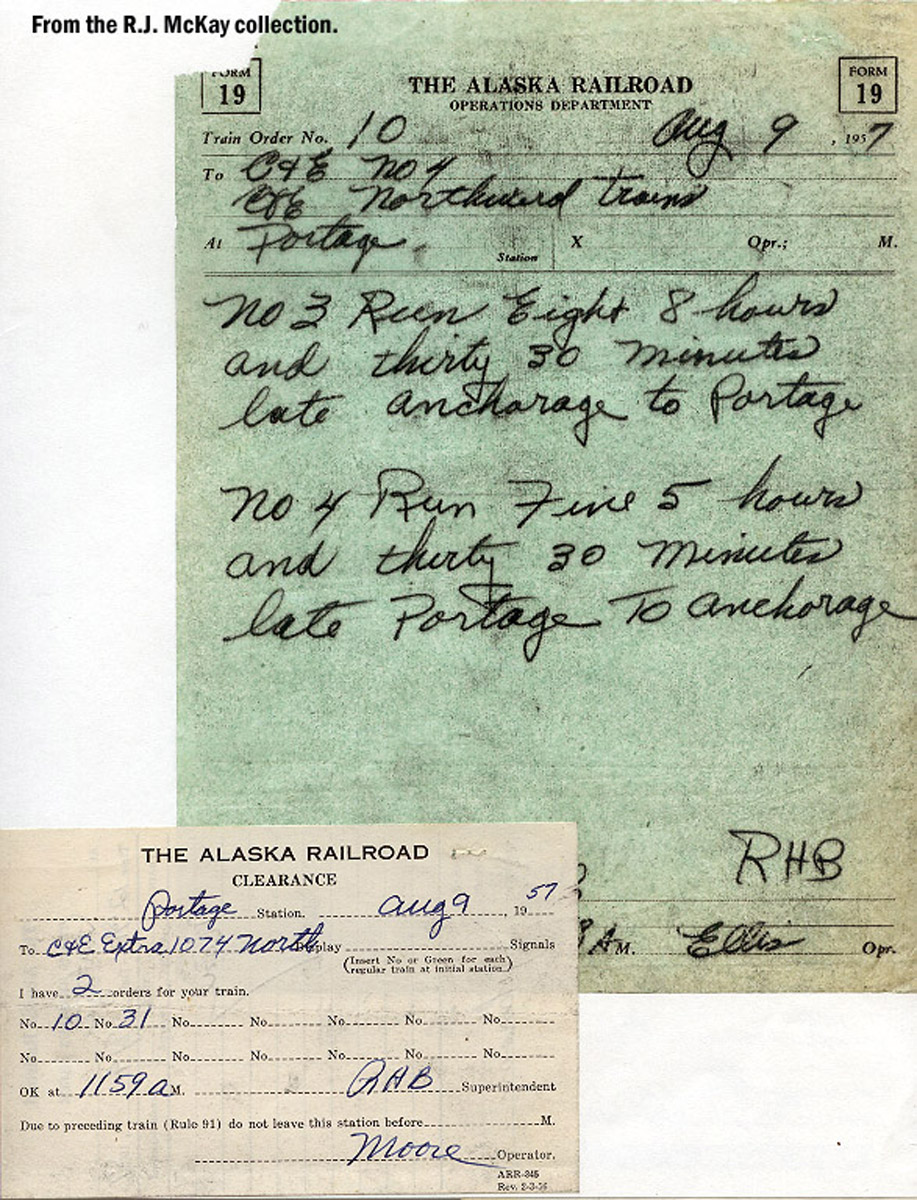 From the R.J. McKay collection.
FORM 19
THE ALASKA RAILROAD
FORM 19
OPERATIONS DEPARTMENT
Train Order No. 10 Aug 9, 1957
To C&E No 4
C&E Northward trains
At Portage Station X Opr.; M.
No 3 Run Eight 8 hours
and thirty 30 minutes
late Anchorage to Portage
No 4 Run Five 5 hours
and thirty 30 Minutes
late Portage To Anchorage
RHB
AM. Ellis Opr.
THE ALASKA RAILROAD
CLEARANCE
Portage Station. Aug 9, 1957
To C&E Extra 1074 North Display Signals
(Insert No or Green for each regular train at initial station.)
I have 2 orders for your train.
No 10 No 31 No No No No No
No No No No No No No
OK at 1159 a M. RHB Superintendent
Due to preceding train (Rule 91) do not leave this station before M.
Moore Operator.
ARR-345
Rev. 2-3-56